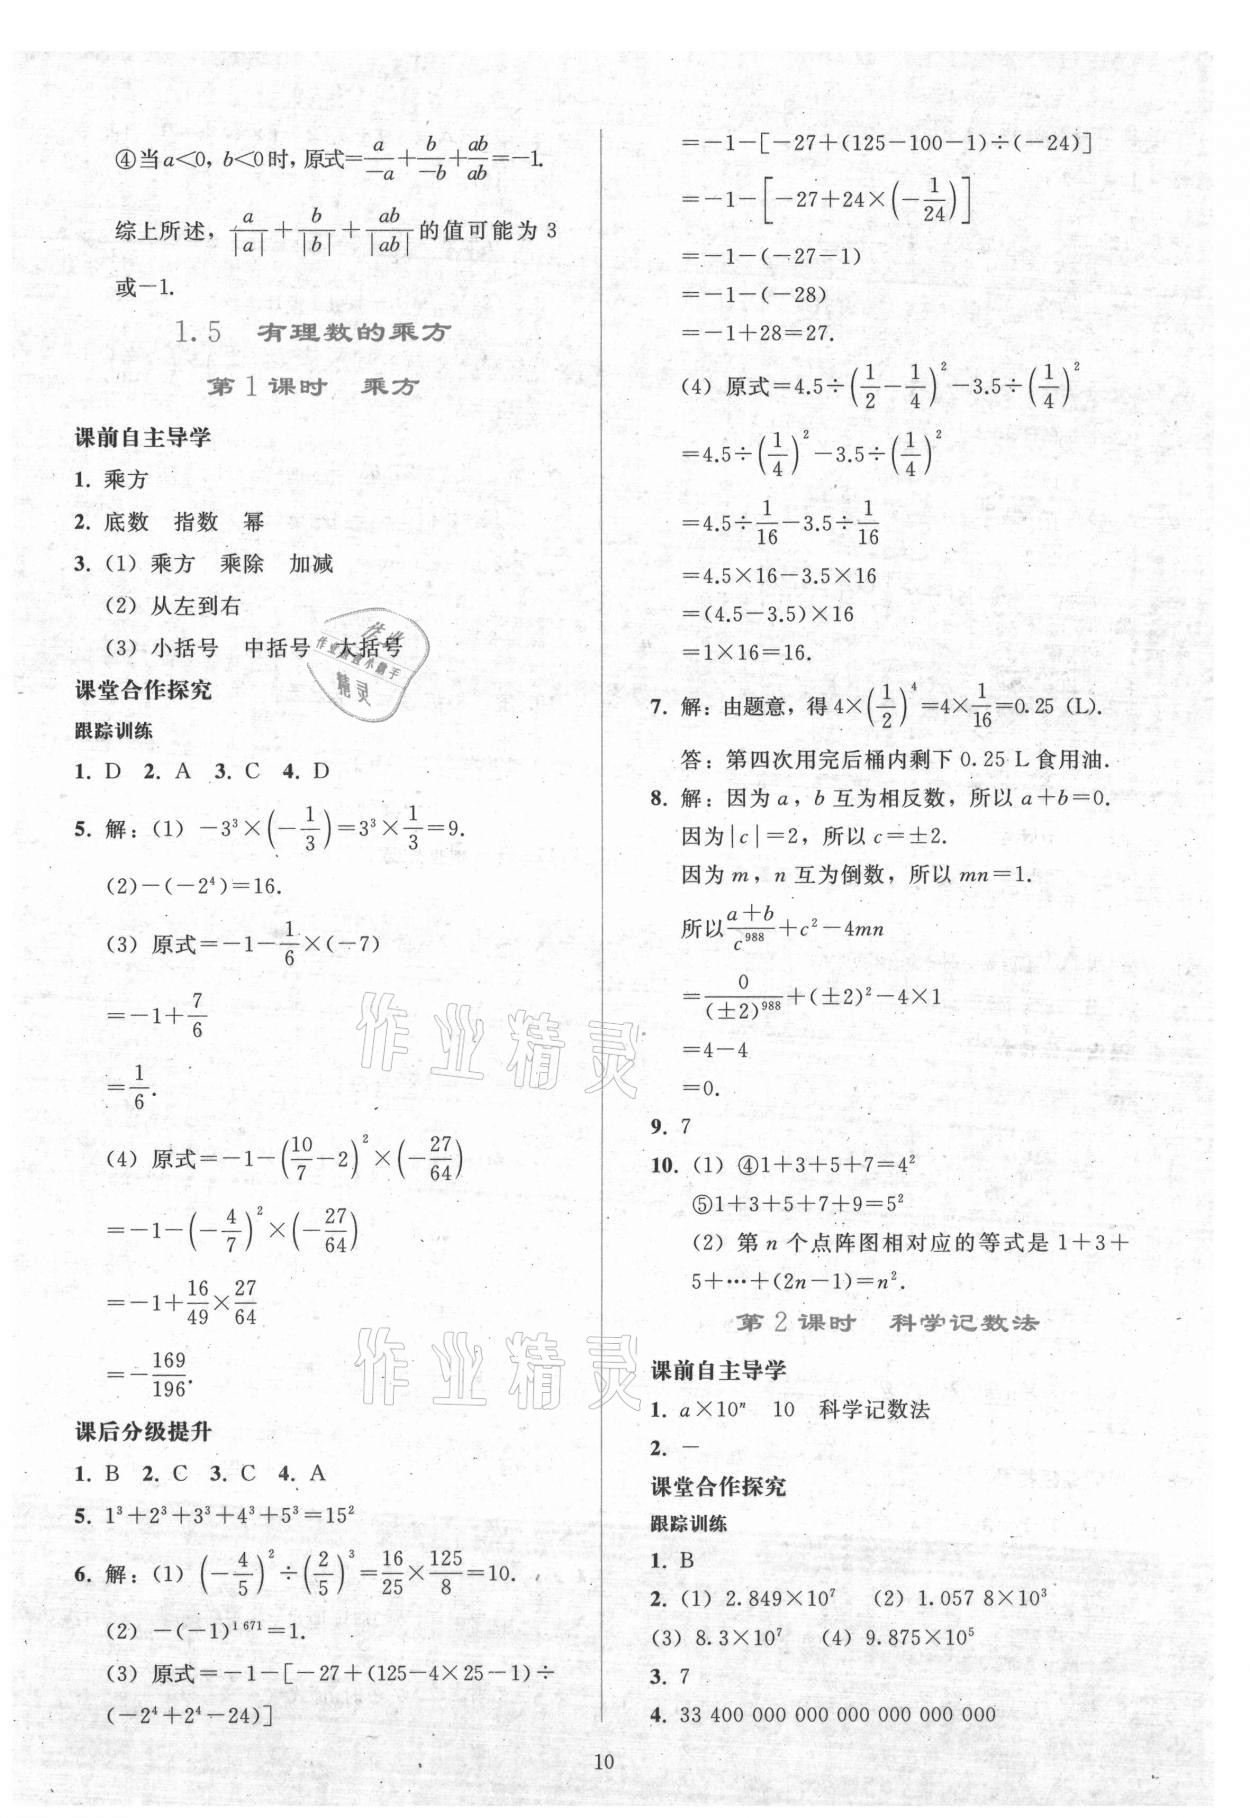 ④当a<0, b<0时, 原式=a/-a+b/-b+ab/ab=-1.
综上所述, a/|a|+b/|b|+ab/|ab|的值可能为 3
或-1.
1.5 有理数的乘方
第1课时 乘方
课前自主导学
1. 乘方
2. 底数 指数 幂
3. (1) 乘方 乘除 加减
(2) 从左到右
(3) 小括号 中括号 大括号
课堂合作探究
跟踪训练
1. D 2. A 3. C 4. D
5. 解: (1) -3³×(-1/3)=3³×1/3=9.
(2)-(-2⁴)=16.
(3) 原式=-1-1/6×(-7)
=-1+7/6
=1/6.
(4) 原式=-1-(10/7-2)²×(-27/64)
=-1-(-4/7)²×(-27/64)
=-1+16/49×27/64
=-169/196.
课后分级提升
1. B 2. C 3. C 4. A
5. 1³+2³+3³+4³+5³=15²
6. 解: (1) (-4/5)²÷(2/5)³=16/25×125/8=10.
(2) -(-1)¹ ⁶⁷¹=1.
(3) 原式=-1-[-27+(125-4×25-1)÷
(-2⁴+2⁴-24)]
=-1-[-27+(125-100-1)÷(-24)]
=-1-[-27+24×(-1/24)]
=-1-(-27-1)
=-1-(-28)
=-1+28=27.
(4) 原式=4.5÷(1/2-1/4)²-3.5÷(1/4)²
=4.5÷(1/4)²-3.5÷(1/4)²
=4.5÷1/16-3.5÷1/16
=4.5×16-3.5×16
=(4.5-3.5)×16
=1×16=16.
7. 解: 由题意, 得 4×(1/2)⁴=4×1/16=0.25 (L).
答: 第四次用完后桶内剩下 0.25 L 食用油.
8. 解: 因为 a, b 互为相反数, 所以 a+b=0.
因为|c|=2, 所以 c=±2.
因为 m, n 互为倒数, 所以 mn=1.
所以(a+b)/c⁹⁸⁸+c²-4mn
=0/(±2)⁹⁸⁸+(±2)²-4×1
=4-4
=0.
9. 7
10. (1) ④1+3+5+7=4²
⑤1+3+5+7+9=5²
(2) 第 n 个点阵图相对应的等式是 1+3+
5+…+(2n-1)=n².
第2课时 科学记数法
课前自主导学
1. a×10ⁿ 10 科学记数法
2. -
课堂合作探究
跟踪训练
1. B
2. (1) 2.849×10⁷ (2) 1.057 8×10³
(3) 8.3×10⁷ (4) 9.875×10⁵
3. 7
4. 33 400 000 000 000 000 000 000
10
作业精灵
作业精灵